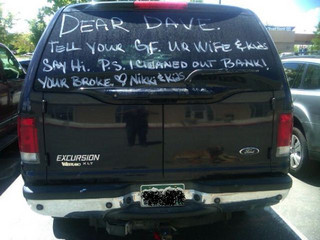 DEAR DAVE.
TELL YOUR GF. UR WIFE & KIDS
SAY HI. P.S. I CLEANED OUT BANK!
YOUR BROKE. ♡ NIKKI & KIDS
EXCURSION
XLT
Ford